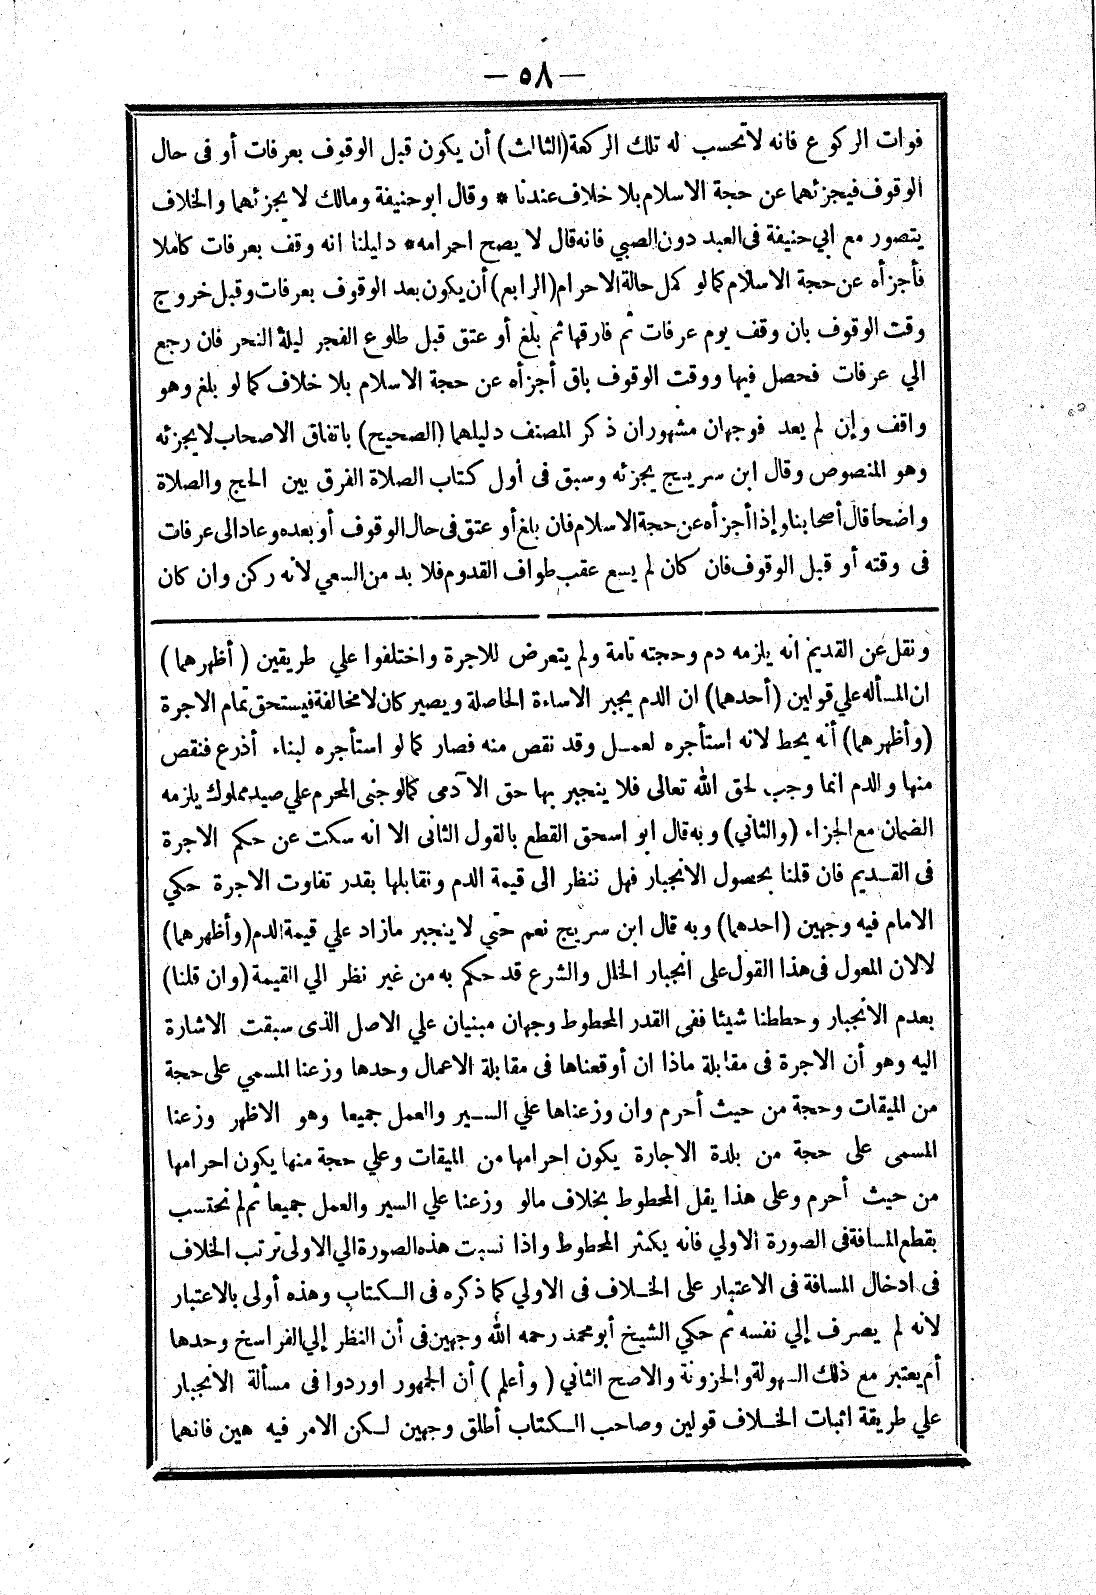 — ٥٨ —
فوات الركوع فانه لا تحسب له تلك الركعة (الثالث) أن يكون قبل الوقوف بعرفات أو فى حال
الوقوف فيجزئهما عن حجة الاسلام بلا خلاف عندنا * وقال ابو حنيفة ومالك لا يجزئهما والخلاف
يتصور مع ابي حنيفة فى العبد دون الصبي فانه قال لا يصح احرامه * دليلنا انه وقف بعرفات كاملا
فأجزأه عن حجة الاسلام كما لو كمل حالة الاحرام (الرابع) أن يكون بعد الوقوف بعرفات وقبل خروج
وقت الوقوف بان وقف يوم عرفات ثم فارقها ثم بلغ أو عتق قبل طلوع الفجر ليلة النحر فان رجع
الي عرفات فحصل فيها ووقت الوقوف باق أجزأه عن حجة الاسلام بلا خلاف كما لو بلغ وهو
واقف وإن لم يعد فوجهان مشهوران ذكر المصنف دليلهما (الصحيح) باتفاق الاصحاب لا يجزئه
وهو المنصوص وقال ابن سريج يجزئه وسبق فى أول كتاب الصلاة الفرق بين الحج والصلاة
واضحا قال أصحابنا وإذا أجزأه عن حجة الاسلام فان بلغ أو عتق فى حال الوقوف أو بعده وعاد الى عرفات
فى وقته أو قبل الوقوف فان كان لم يسع عقب طواف القدوم فلا بد من السعي لانه ركن وان كان
ونقل عن القديم انه يلزمه دم وحجته تامة ولم يتعرض للاجرة واختلفوا علي طريقين (أظهرهما)
ان المسأله علي قولين (أحدهما) ان الدم يجبر الاساءة الحاصلة ويصير كان لا مخالفة فيستحق تمام الاجرة
(وأظهرهما) أنه يحط لانه استأجره لعمل وقد نقص منه فصار كما لو استأجره لبناء أذرع فنقص
منها والدم انما وجب لحق الله تعالى فلا ينجبر بها حق الآدمى كما لو جنى المحرم علي صيد مملوك يلزمه
الضمان مع الجزاء (والثاني) وبه قال ابو اسحق القطع بالقول الثانى الا انه سكت عن حكم الاجرة
فى القديم فان قلنا بحصول الانجبار فهل ننظر الى قيمة الدم ونقابلها بقدر تفاوت الاجرة حكي
الامام فيه وجهين (احدهما) وبه قال ابن سريج نعم حتي لا ينجبر مازاد علي قيمة الدم (وأظهرهما)
لا لان المعول فى هذا القول على انجبار الخلل والشرع قد حكم به من غير نظر الي القيمة (وان قلنا)
بعدم الانجبار وحططنا شيئا ففى القدر المحطوط وجهان مبنيان علي الاصل الذى سبقت الاشارة
اليه وهو أن الاجرة فى مقابلة ماذا ان أوقعناها فى مقابلة الاعمال وحدها وزعنا المسمي على حجة
من الميقات وحجة من حيث أحرم وان وزعناها علي السير والعمل جميعا وهو الاظهر وزعنا
المسمى على حجة من بلدة الاجارة يكون احرامها من الميقات وعلي حجة منها يكون احرامها
من حيث أحرم وعلى هذا يقل المحطوط بخلاف مالو وزعنا علي السير والعمل جميعا ثم لم نحتسب
بقطع المسافة فى الصورة الاولي فانه يكثر المحطوط واذا نسبت هذه الصورة الي الاولى ترتب الخلاف
فى ادخال المسافة فى الاعتبار على الخلاف فى الاولي كما ذكره فى الكتاب وهذه أولى بالاعتبار
لانه لم يصرف إلي نفسه ثم حكي الشيخ أبو محمد رحمه الله وجهين فى أن النظر إلي الفراسخ وحدها
أم يعتبر مع ذلك السهولة والحزونة والاصح الثاني (وأعلم) أن الجمهور اوردوا فى مسألة الانجبار
علي طريقة اثبات الخلاف قولين وصاحب الكتاب أطلق وجهين لكن الامر فيه هين فانهما